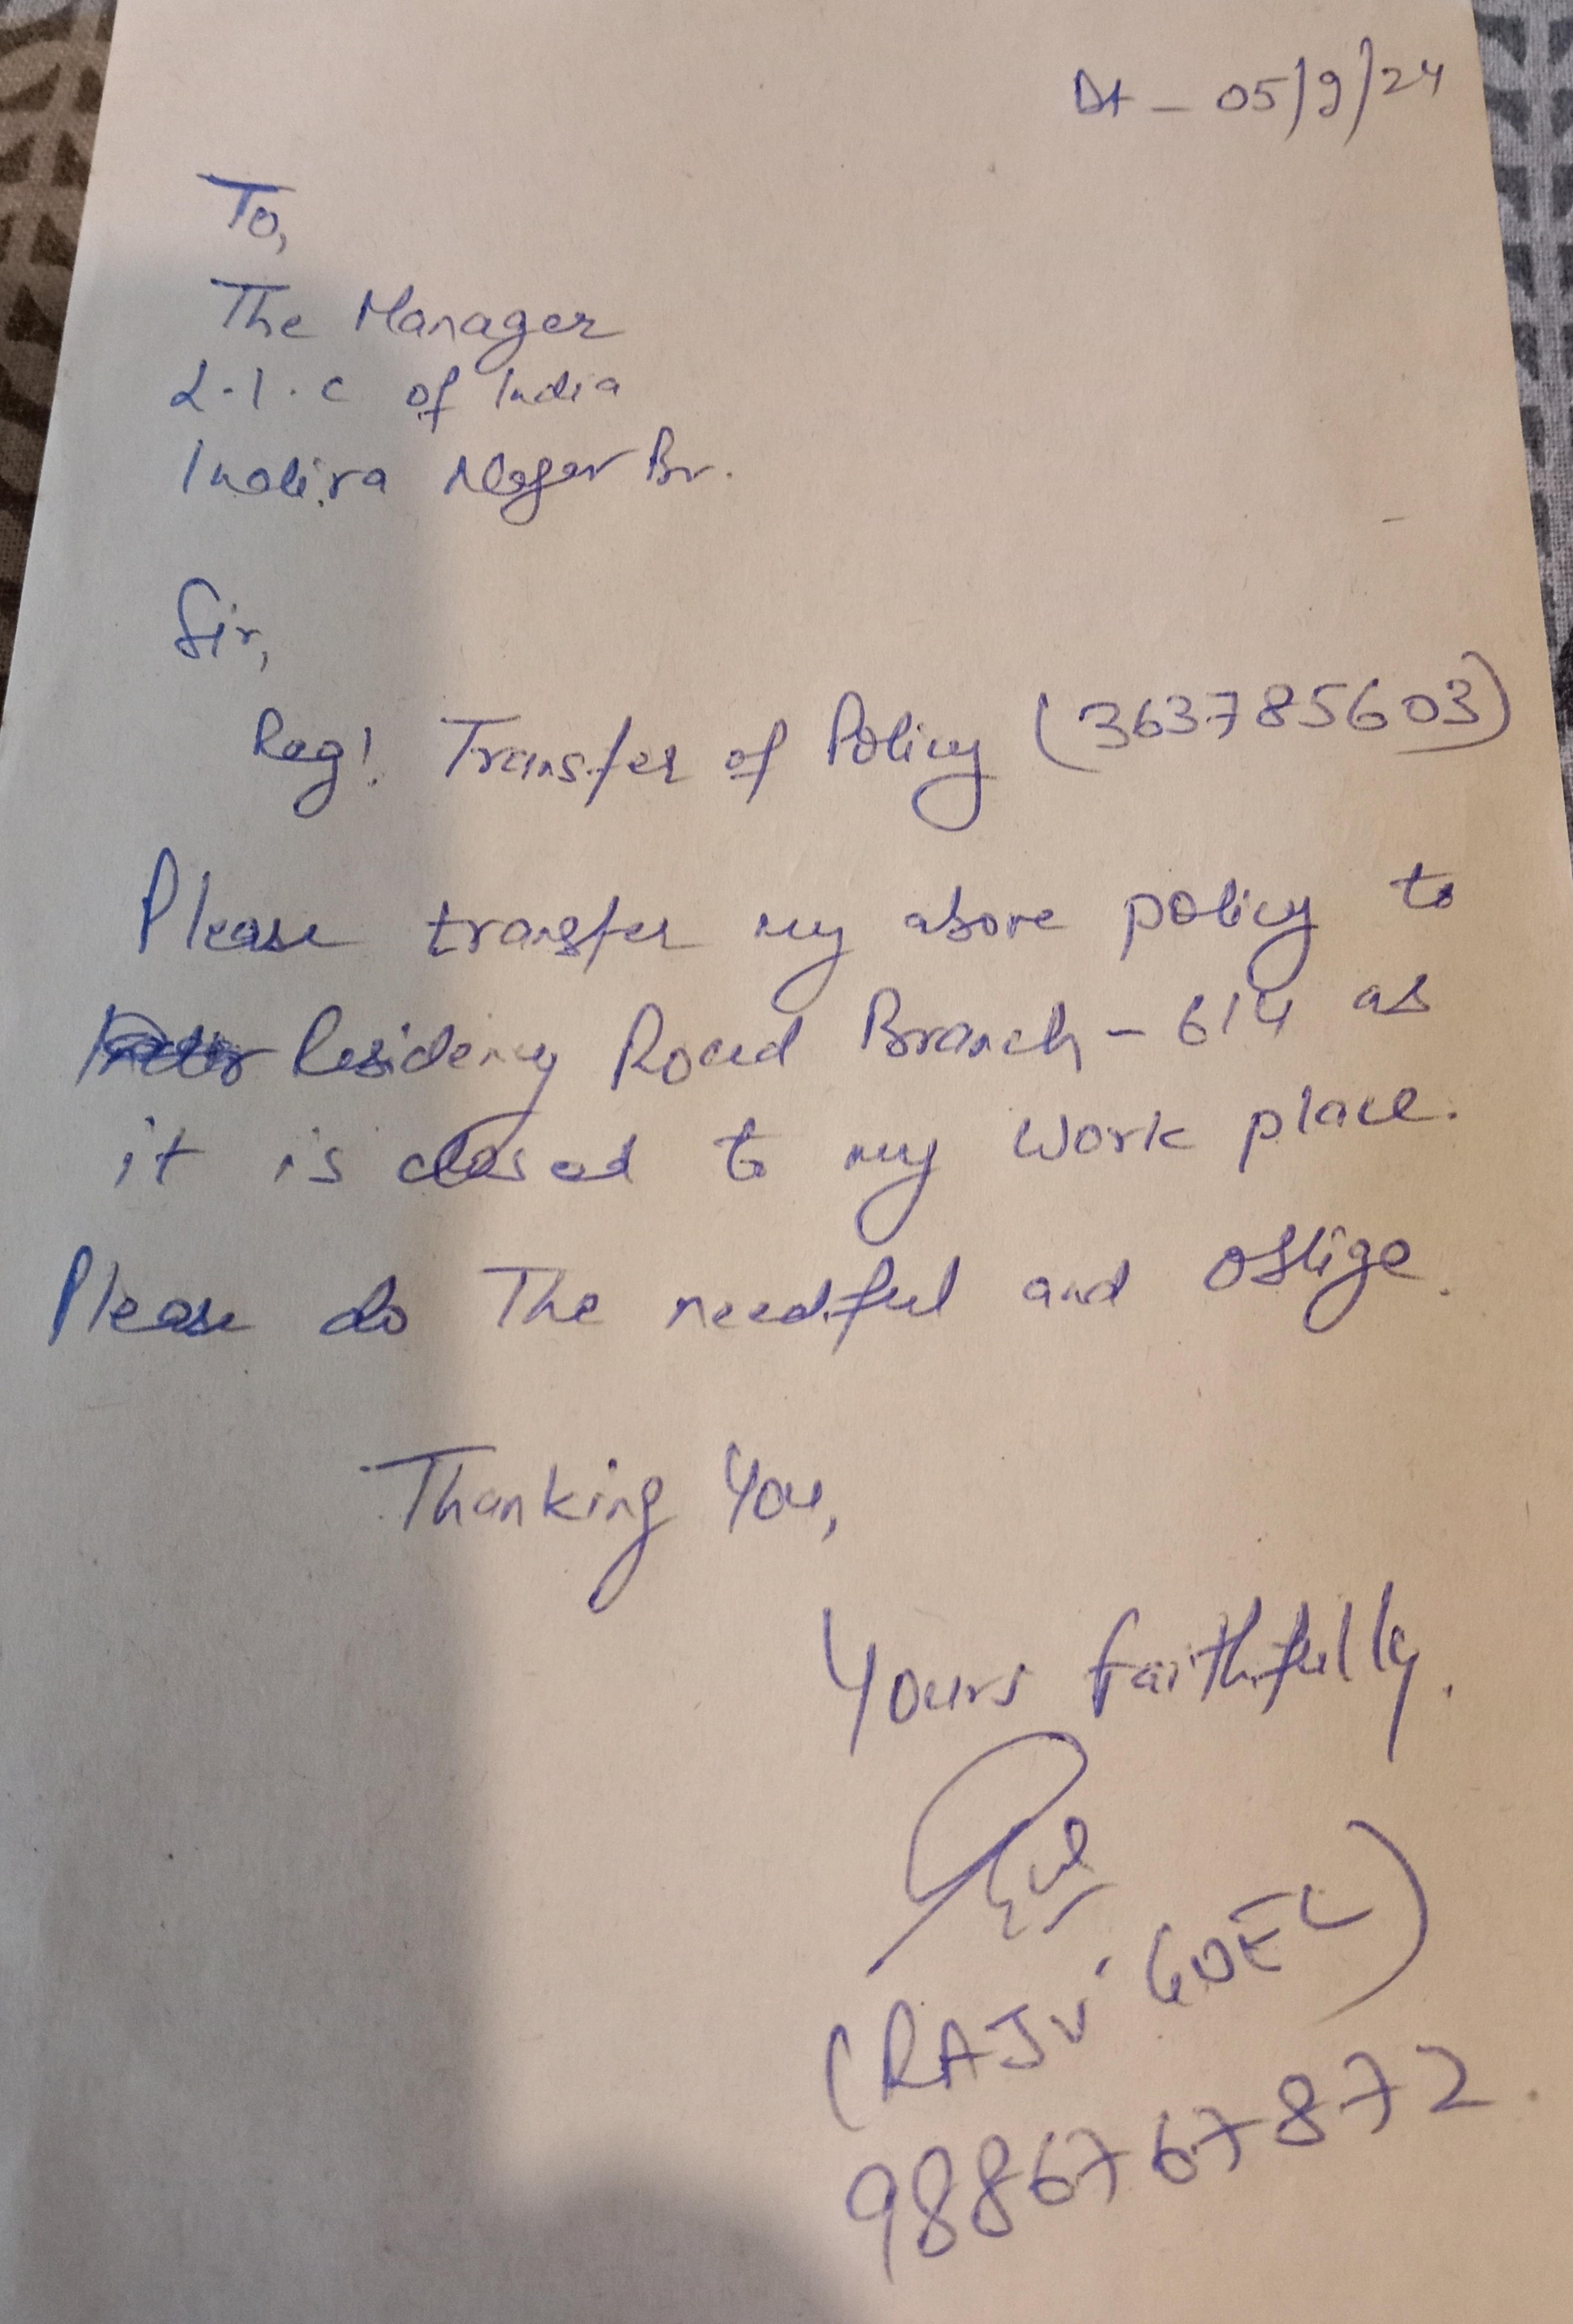 Dt - 05/9/24
To,
The Manager
L.I.C of India
Indira Nagar Br.
Sir,
Reg: Transfer of Policy (363785603)
Please transfer my above policy to
Residency Road Branch - 614 as
it is closed to my work place.
Please do The needful and oblige.
Thanking You,
Yours faithfully.
(RAJIV GOEL)
9886767872.